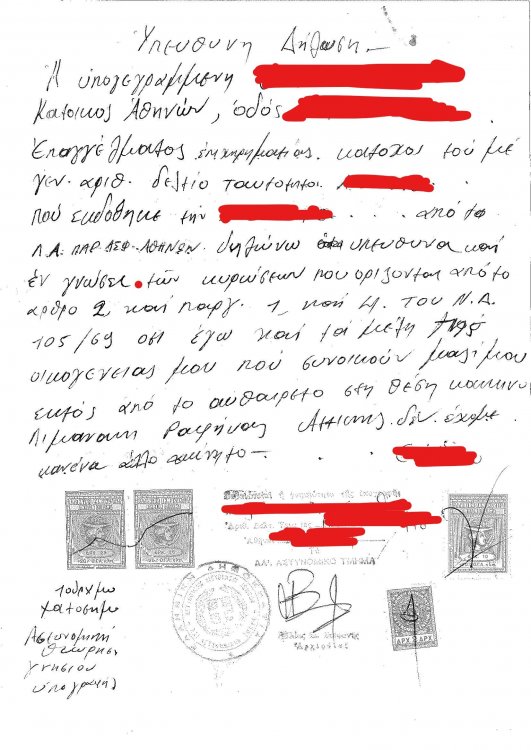 Υπευθυνη Δήλωση -
Η ὑπογεγραμμενη
Κατοικος Ἀθηνών, ὁδός
Επαγγέλματος ἐπιχηρηματίας. κατοχος τού μέ
γεν. αριθ. δελτιο ταυτοτητοσ
πού εκδοθηκε τήν . . . από το
Π.Α. ΠΑΡ. ΔΕΦ. ΑΘΗΝΩΝ. δηλώνω υπευθυνα καί
ἐν γνωσει τῶν κυρώσεων που οριζονται από το
αρθρο 2 καί παργ. 1 καί 4. του Ν.Δ.
105/69 οτι ἐγώ καί τά μέλη της
οικογενειας μου πού συνοικούν μαζί μου
εκτός από το αυθαιρετο στη θέση κοκκινο
Λιμανακη Ραφήνας Αττικης δέν ἔχομε
κανένα ἄλλο ακίνητο - . . .
ΤΟ
ΑΣΤΥΝΟΜΙΚΟ ΤΜΗΜΑ
ΔΡΧ ΔΡΧ
χατοσημο
Αστυνομική
θεώρηση
γνησιου
ὑπογραφής